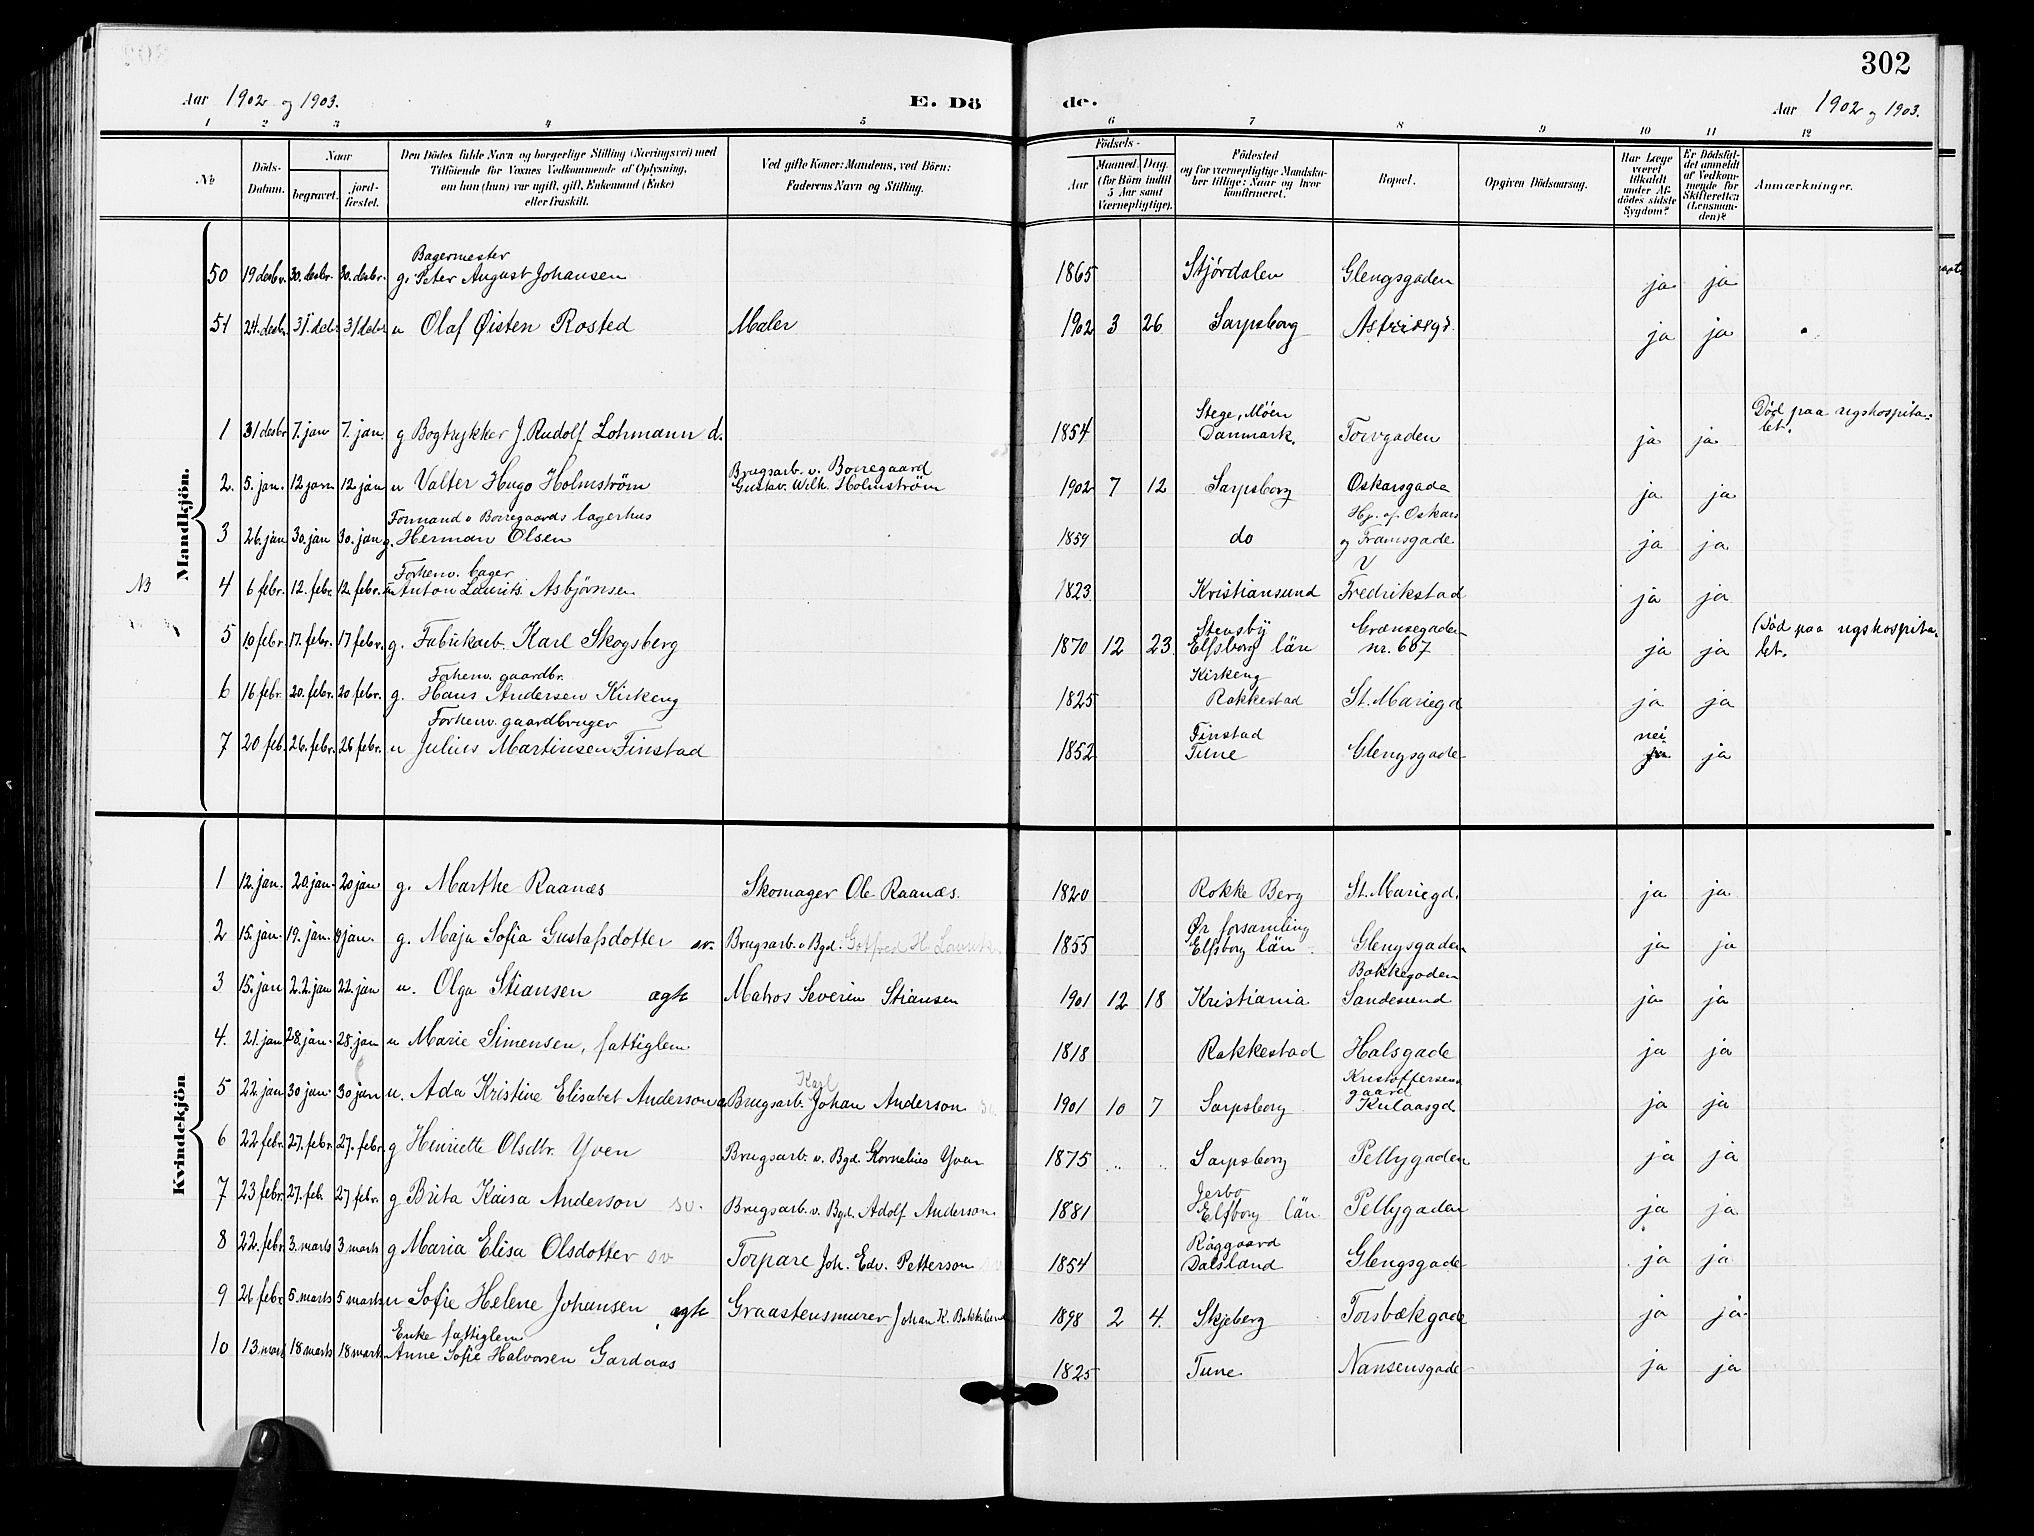 302
Aar 1902 og 1903.
E. Dö de.
Aar 1902 og 1903.
1 2 3 4 5 6 7 8 9 10 11 12
№
Döds-Datum.
Naar
begravet.
jord-fæstet.
Den Dödes fulde Navn og borgerlige Stilling (Næringsvei) med
Tilföiende for Voxnes Vedkommende af Oplysning,
om han (hun) var ugift, gift, Enkemand (Enke)
eller fraskilt.
Ved gifte Koner: Mandens, ved Börn:
Faderens Navn og Stilling.
Födsels-
Aar
Maaned Dag
(for Börn indtil
5 Aar samt
Værnepligtige).
Födested
og for værnepligtige Mandska-
ber tillige: Naar og hvor
konfirmeret.
Bopæl.
Opgiven Dödsaarsag.
Har Læge
været
tilkaldt
under Af-
dödes sidste
Sygdom?
Er Dödsfal-
det anmeldt
af Vedkom-
mende for
Skifteretten
(Lensman-
den)?
Anmærkninger.
Mandkjön.
Bagermester
50 19 desbr. 30. desbr. 30. desbr. g. Peter August Johansen 1865 Stjördalen Glengsgaden ja ja
51 24. desbr. 31. debr 31 debr u Olaf Øisten Rosted Maler 1902 3 26 Sarpsborg Astridsgd. ja ja
Stege, Möen Död paa sygshospita-
1 31 desbr 7. jan 7. jan. g Bogtrykker J. Rudolf Lohmann d. 1854 Danmark. Torvgaden ja ja let.
Brugsarb. v. Borregaard
2. 5. jan. 12 jan 12 jan u Valter Hugo Holmström Gustav. Wilh. Holmström 1902 7 12 Sarpsborg Oskarsgade ja ja
Formand v Borregaards lagerhus Hj. af Oskars
3 26. jan 30. jan 30. jan g. Herman Olsen 1859 do og Framsgade ja ja
Forhenv. bager V
N3 4 6 febr. 12. febr 12. febr. Anton Laurits Asbjörnsen 1823 Kristiansund Fredrikstad ja ja
Stensby Grænsegaden Död paa sygshospita-
5 10 febr. 17. febr. 17 febr. g. Fabrikarb. Karl Skogsberg 1870 12 23 Elfsborg län nr. 667 ja ja let.
Forhenv. gaardbr. Kirkeng
6 16 febr. 20. febr. 20 febr. g. Hans Andersen Kirkeng 1825 Rakkestad St. Mariegd ja ja
Forhenv. gaardbruger Finstad nei
7 20 feb. 26. febr. 26 febr. u Julius Martinsen Finstad 1852 Tune Glengsgade ja ja
Kvindekjön
1 12. jan. 20. jan. 20 jan g. Marthe Raanæs Skomager Ole Raanæs. 1820 Rokke Berg St. Mariegd. ja ja
Ør forsamling
2 15. jan. 19. jan. 9 jan. g. Maja Sofia Gustafsdotter sv. Brugsarb. v Bgd. Gotfred H. 1855 Elfsborg län Glengsgaden ja ja
Bakkegaden
3 15. jan 22. jan 22. jan u. Olga Stiansen agte Matros Severin Stiansen 1901 12 18 Kristiania Sandesund ja ja
4. 21. jan 28. jan. 28. jan u Marie Simensen, fattiglem 1818 Rakkestad Halsgade ja ja
Karl Kristoffersens gaard
5 22. jan 30 jan. 30 jan u. Ada Kristine Elisabet Anderson Brugsarb. Johan Anderson sv. 1901 10 7 Sarpsborg Kulaasgd ja ja
6 22 febr. 27. febr. 27. febr. g Henriette Olsdtr. Yven Brugsarb. v. Bgd. Kornelius Yven 1875 „ „ Sarpsborg Pellygaden ja ja
Jerbo
7 23 febr. 27. feb 27 febr. g Brita Kaisa Anderson sv. Brugsarb. v. Bgd. Adolf Anderson 1881 Elfborg län Pellygaden ja ja
Råggaard
8 22. febr 3. marts 3 marts g Maria Elisa Olsdotter sv Torpare Joh. Edv. Petterson sv 1854 Dalsland Glengsgade ja ja
9 26 febr 5. marts 5 marts u Sofie Helene Johansen, agte Graastensmurer Johan K. Bakkelund 1898 2 4. Skjeberg Torsbækgade ja ja
Enke fattiglem
10 13. mart 18 marts 18 marts Anne Sofie Halvorsen Gardaas 1825 Tune Nansensgade ja ja